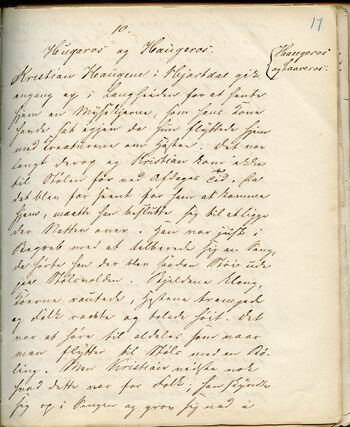 17
10.
Hugaros og Haugeros.
Haugeros
og Laaveros.
Kristian Haugene i Hjartdal gik
engang op i Langheiden for at hente
hjem en Mysekjørne, som hans Kone
havde sat igjen da hun flyttede hjem
med Kreaturene om Høsten. Det var
langt derop og Kristian kom ikke
til Stølen før ved Aftens Tid. Da
det blev for seent for ham at komme
hjem, maatte han beslutte sig til at ligge
der Natten over. Han var just i
Begreb med at tilberede sig en Seng,
da hørte han der blev saadan Støi ude
paa Stølsvolden. Bjeldene klang,
Kjørene rautede, Hestene trampede
og Folk raabte og talede høit. Det
var at høre til aldeles som naar
man flytter til Støls med en Bø-
ling. Men Kristian vidste nok
hvad dette var for Folk; han skyndte
sig op i Sengen og grov sig ned i